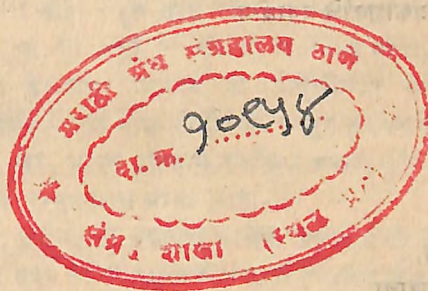 मराठी ग्रंथ संग्रहालय ठाणे
दा. क्र. १०९५४
शाखा